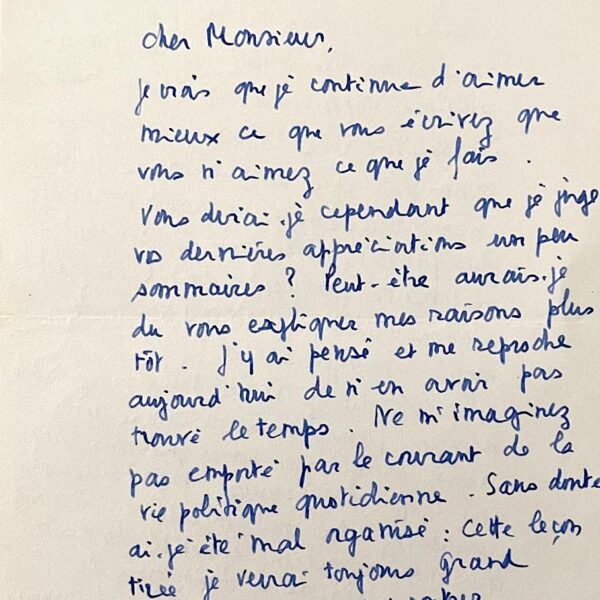 cher Monsieur,
je vois que je continue d'aimer
mieux ce que vous écrivez que
vous n'aimez ce que je fais.
Vous dirai-je cependant que je juge
vos dernières appréciations un peu
sommaires ? Peut-être aurais-je
du vous expliquer mes raisons plus
tôt. J'y ai pensé et me reproche
aujourd'hui de n'en avoir pas
trouvé le temps. Ne m'imaginez
pas emporté par le courant de la
vie politique quotidienne. Sans doute
ai-je été mal organisé : cette leçon
tirée je verrai toujours grand